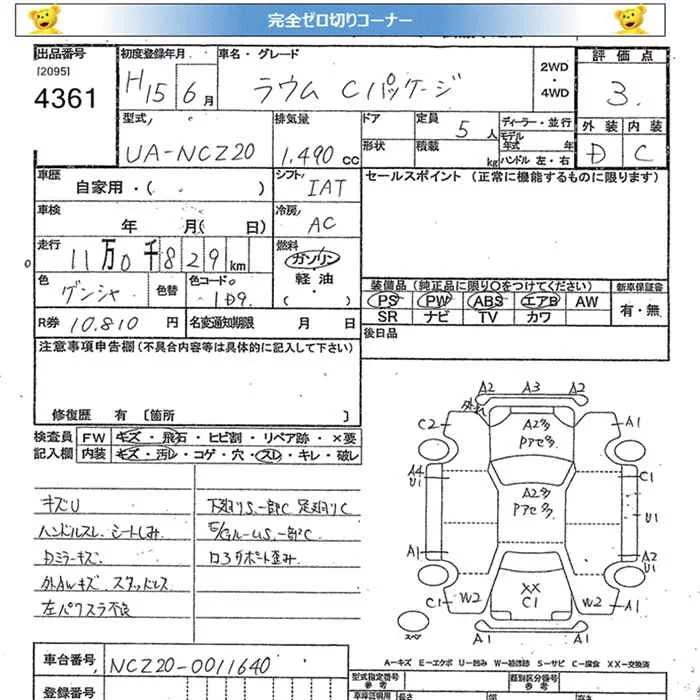 完全ゼロ切りコーナー
出品番号 初度登録年月 車名・グレード 2WD・4WD 評価点
[2095]
4361 H15 6月 ラウム Cパッケージ 3.
型式 排気量 ドア 定員 5人 ディーラー・並行 外装 内装
UA-NCZ20 1.490cc 形状 積載 kg モデル年式 年 D C
ハンドル左・右
車歴 自家用・( ) シフト IAT セールスポイント(正常に機能するものに限ります)
車検 年 月( 日) 冷房 AC
走行 11万0千829km 燃料 ガソリン
軽油・( )
色 ゲンシャ 色替 色コード 1D9. 装備品(純正品に限り○をつけてください) 新車保証書
PS PW ABS エアB AW 有・無
SR ナビ TV カワ
R券 10.810円 名変通知期限 月 日 後日品
注意事項申告欄(不具合内容等は具体的に記入して下さい)
修復歴 有 〔箇所 〕
検査員 FW キズ・飛石・ヒビ割・リペア跡・×要
記入欄 内装 キズ・汚レ・コゲ・穴・スレ・キレ・破レ
キズU
ハンドルスレ、シートしみ
Dミラーキズ
外AWキズ スタッドレス
左パワスラ不良
下廻りS、一部C 足廻りC
E/GルームS、一部C
ロアサポート歪み
A2 A3 A2
外れ
C2 A2多 A1
Pアセ多
A4 U1 A2多 C1
Pアセ多 U1
A1 A2 U1
C1 W2 XX C1 W2 A1
スペア A1 A1
A-キズ E-エクボ U-凹み W-補修跡 S-サビ C-腐食 XX-交換済
車台番号 NCZ20-0011640 型式指定番号 参考 類別区分番号 参考
登録番号 車庫証明用 長さ 幅 高さ